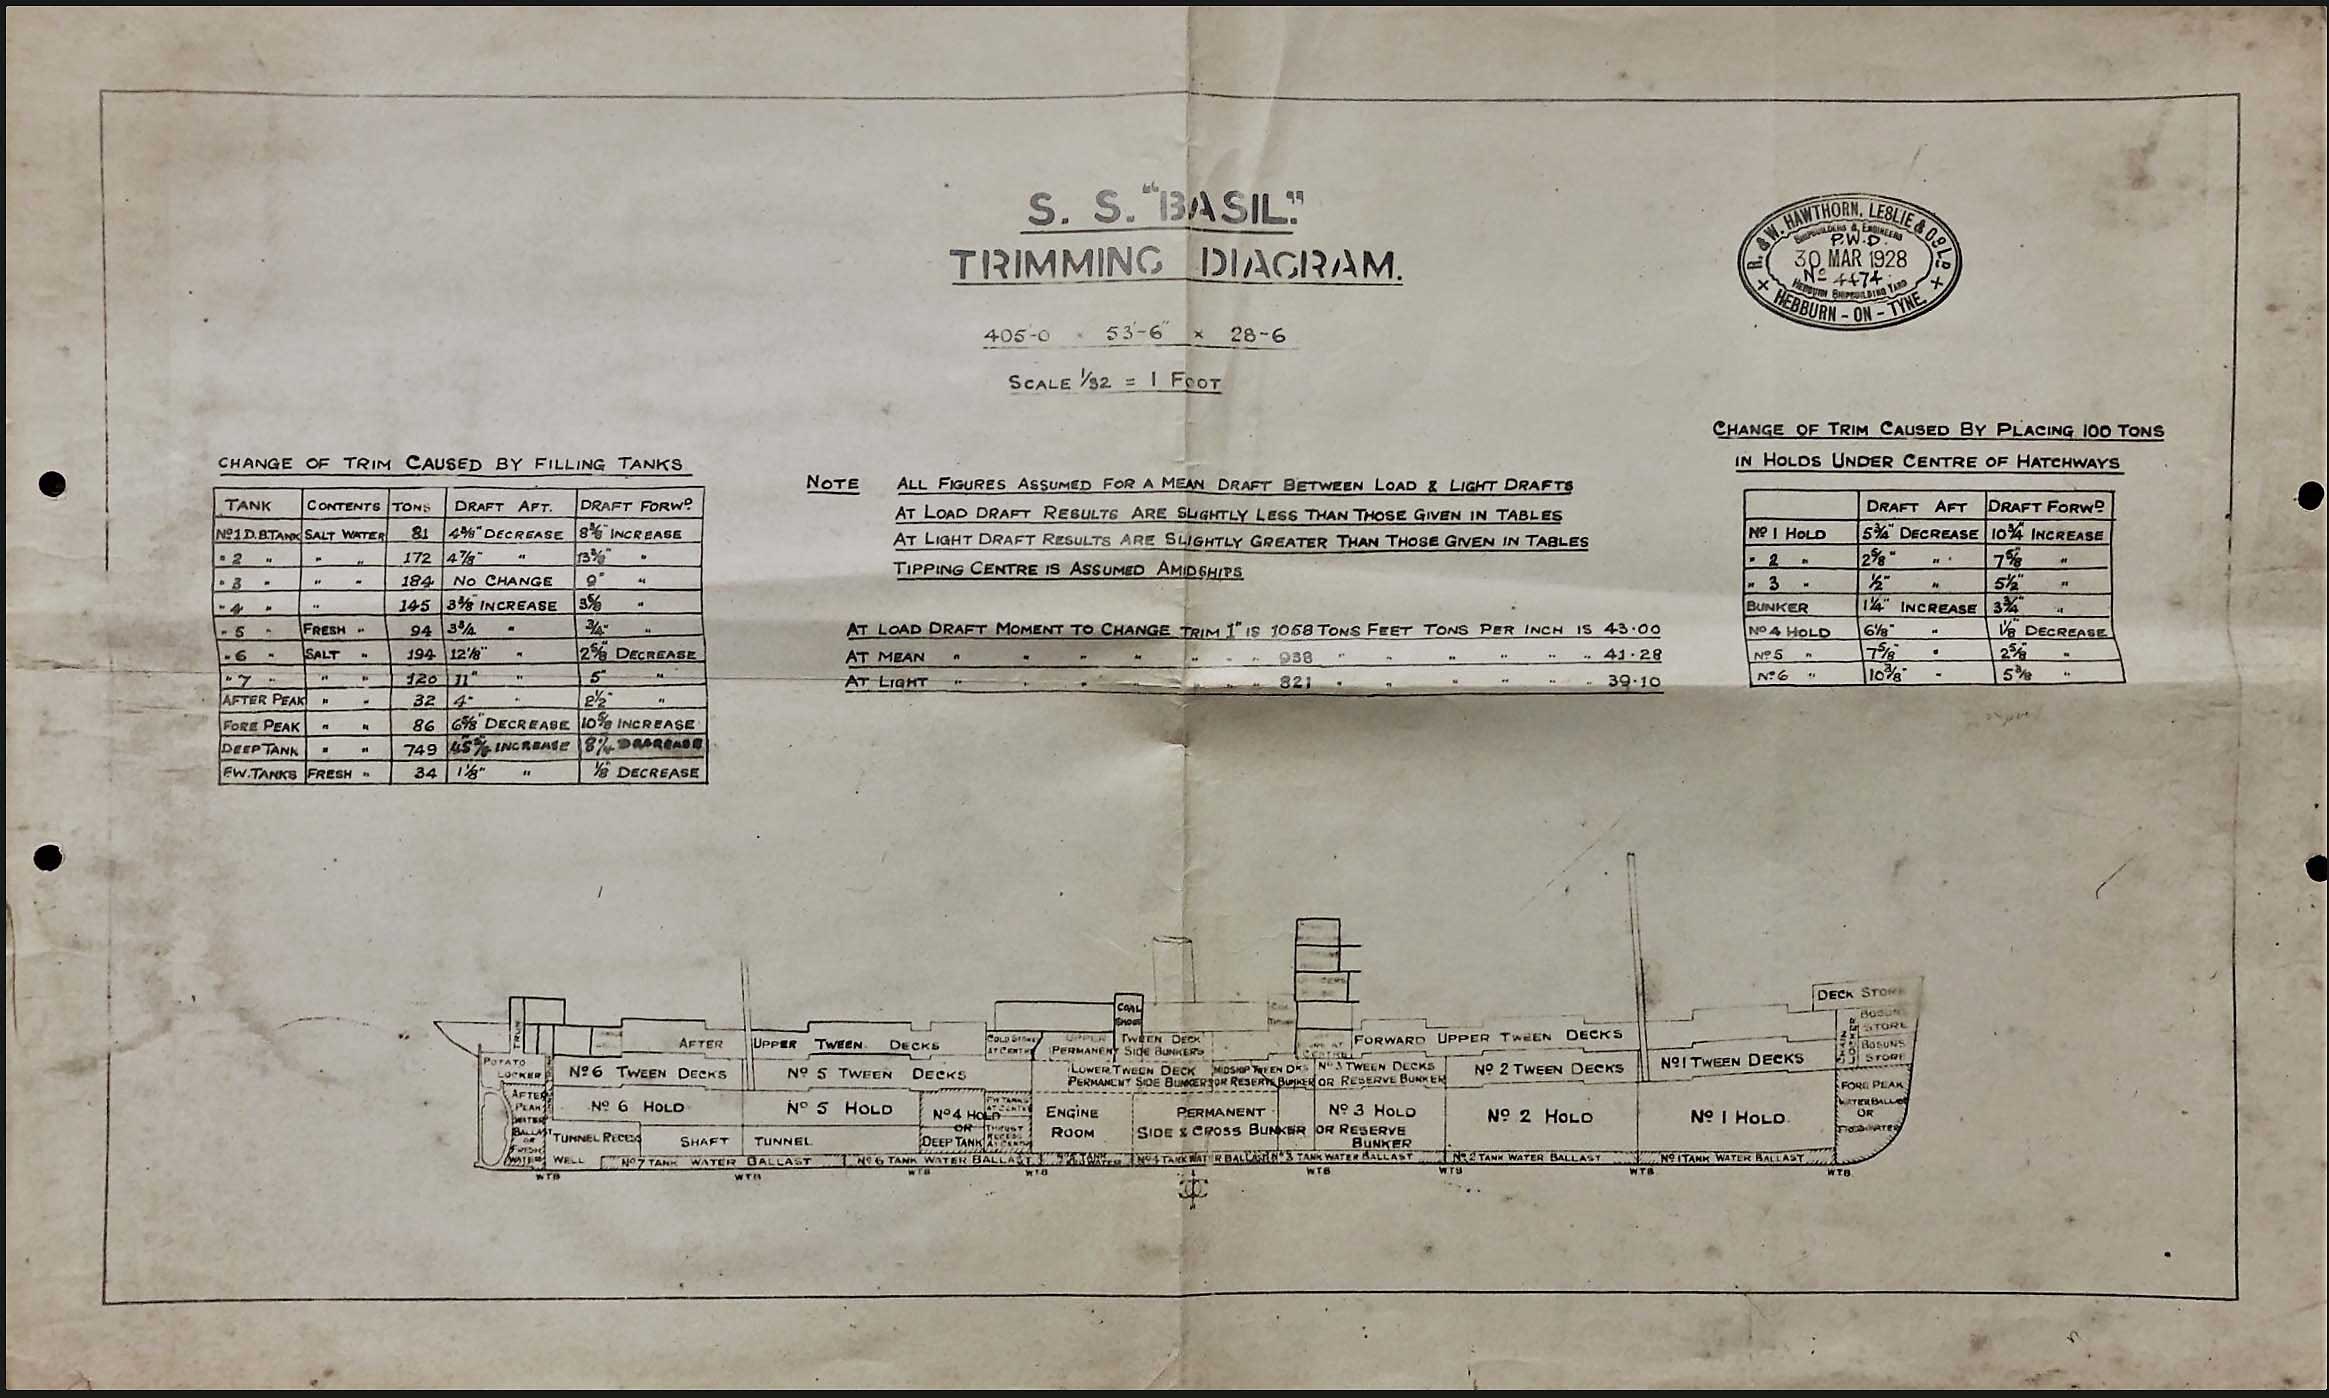 S. S. "BASIL."
TRIMMING DIAGRAM.
405'-0 × 53'-6" × 28-6
SCALE 1/32 = 1 FOOT
R. & W. HAWTHORN, LESLIE & Co. LD.
SHIPBUILDERS & ENGINEERS
P.W.D.
30 MAR 1928
No 4474
HEBBURN SHIPBUILDING YARD
HEBBURN - ON - TYNE
CHANGE OF TRIM CAUSED BY FILLING TANKS
TANK CONTENTS TONS DRAFT AFT. DRAFT FORWD
No1 D.B.TANK SALT WATER 81 4 3/8" DECREASE 8 3/8" INCREASE
" 2 " " " 172 4 7/8" " 13 3/8" "
" 3 " " " 184 NO CHANGE 9" "
" 4 " " 145 3 3/8" INCREASE 3 5/8 "
" 5 " FRESH " 94 3 3/4 " 3/4" "
" 6 " SALT " 194 12 1/8" " 2 5/8" DECREASE
" 7 " " " 120 11" " 5" "
AFTER PEAK " " 32 4" " 2 1/2" "
FORE PEAK " " 86 6 5/8" DECREASE 10 5/8 INCREASE
DEEP TANK " " 749 INCREASE 8 1/4
F.W. TANKS FRESH " 34 1 1/8" " 1/8" DECREASE
NOTE ALL FIGURES ASSUMED FOR A MEAN DRAFT BETWEEN LOAD & LIGHT DRAFTS
AT LOAD DRAFT RESULTS ARE SLIGHTLY LESS THAN THOSE GIVEN IN TABLES
AT LIGHT DRAFT RESULTS ARE SLIGHTLY GREATER THAN THOSE GIVEN IN TABLES
TIPPING CENTRE IS ASSUMED AMIDSHIPS
AT LOAD DRAFT MOMENT TO CHANGE TRIM 1" IS 1058 TONS FEET TONS PER INCH IS 43·00
AT MEAN " " " " " " " 938 " " " " " " 41·28
AT LIGHT " " " " " " " 821 " " " " " " 39·10
CHANGE OF TRIM CAUSED BY PLACING 100 TONS
IN HOLDS UNDER CENTRE OF HATCHWAYS
DRAFT AFT DRAFT FORWD
No 1 HOLD 5 3/4" DECREASE 10 3/4" INCREASE
" 2 " 2 5/8" " 7 5/8" "
" 3 " 1/2" " 5 1/2" "
BUNKER 1 1/4" INCREASE 3 3/4" "
No 4 HOLD 6 1/8" " 1/8" DECREASE
No 5 " 7 5/8" " 2 5/8" "
No 6 " 10 3/8" " 5 3/8" "
COAL
SHOOT
DECK STORE
BOSUNS
STORE
BOSUNS
STORE
CHAIN
LOCKER
TRUNK
AFTER UPPER TWEEN DECKS
COLD STORE
AT CENTRE
UPPER TWEEN DECK
PERMANENT SIDE BUNKERS
FORWARD UPPER TWEEN DECKS
POTATO
LOCKER
No 6 TWEEN DECKS
No 5 TWEEN DECKS
LOWER TWEEN DECK
PERMANENT SIDE BUNKERS
MIDSHIP TWEEN DKS
OR RESERVE BUNKER
No 3 TWEEN DECKS
OR RESERVE BUNKER
No 2 TWEEN DECKS
No 1 TWEEN DECKS
AFTER
PEAK
WATER
BALLAST
OR
FRESH
WATER
No 6 HOLD
No 5 HOLD
No 4 HOLD
OR
DEEP TANK
F.W. TANKS
AT CENTRE
THRUST
RECESS
AT CENTRE
ENGINE
ROOM
PERMANENT
SIDE & CROSS BUNKER
No 3 HOLD
OR RESERVE
BUNKER
No 2 HOLD
No 1 HOLD
FORE PEAK
WATER BALLAST
OR
TUNNEL RECESS
SHAFT TUNNEL
WELL
No 7 TANK WATER BALLAST
No 6 TANK WATER BALLAST
No 4 TANK WATER BALLAST
No 3 TANK WATER BALLAST
No 2 TANK WATER BALLAST
No 1 TANK WATER BALLAST
WTB WTB WTB WTB WTB WTB WTB WTB